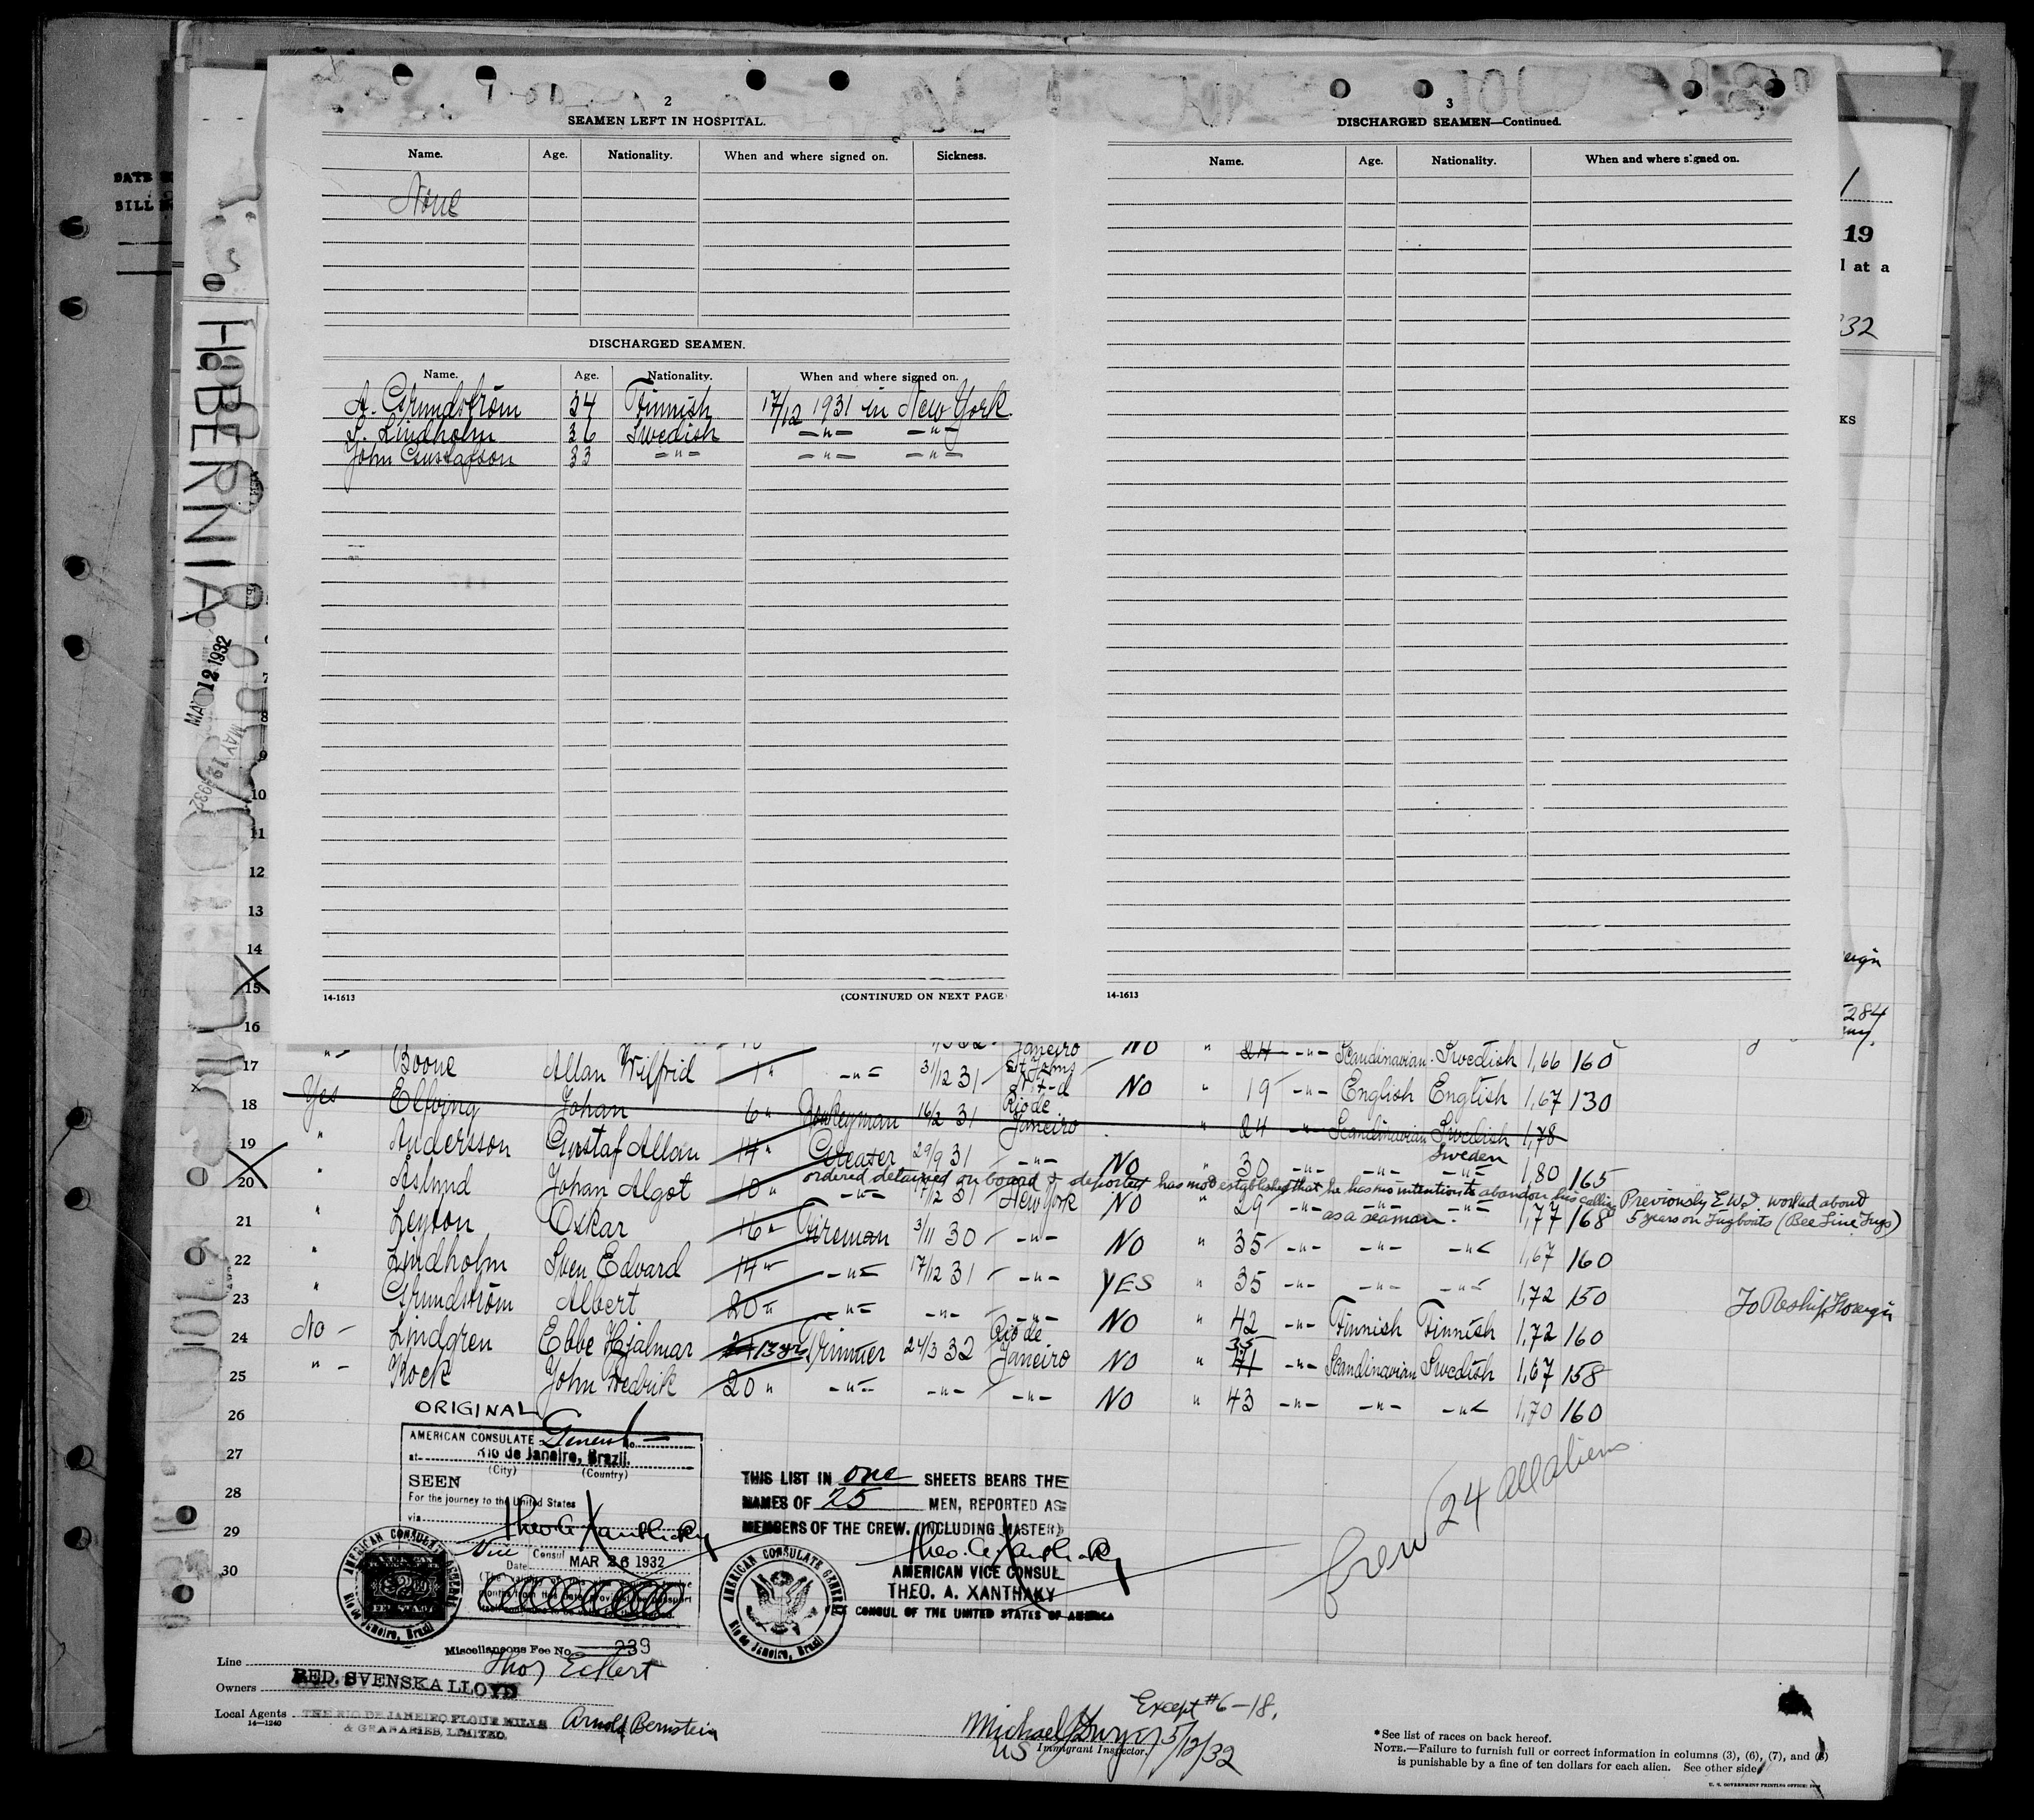 2
SEAMEN LEFT IN HOSPITAL.
Name. Age. Nationality. When and where signed on. Sickness.
None
DISCHARGED SEAMEN.
Name. Age. Nationality. When and where signed on.
A. Grundström 34 Finnish 17/12 1931 in New York.
S. Lindholm 36 Swedish -"- -"-
John Gustafson 33 -"- -"- -"-
14-1613 (CONTINUED ON NEXT PAGE
3
DISCHARGED SEAMEN—Continued.
Name. Age. Nationality. When and where signed on.
14-1613
DATE
BILL
19
l at a
232
KS
eign
284
HIBERNIA
MAY 12 1932
MAY 12 1932
10
11
12
13
14
15
16
Janeiro NO " 24 -"- Scandinavian Swedish 1,66 160
17 "- Boone Allan Wilfrid 1" -"- 31/12 31 St Johns NO " 19 -"- English English 1,67 130
18 Yes Elfving Johan 6" Donkeyman 16/2 31 Rio de Janeiro " 24 -"- Scandinavian Swedish 1,78
19 " Andersson Gustaf Allan 14" Greaser 29/9 31 -"- NO " 30 -"- -"- Sweden -"- 1,80 165
ordered detained on board & deported has not established that he has no intention to abandon his calling as a seaman. Previously E.W.I. worked about 5 years on Tugboats (Bee Line Tugs)
20 " Åslund Johan Algot 10" -"- 17/12 31 New York NO " 29 -"- -"- 1,77 168
21 " Leyton Oskar 16" Fireman 3/11 30 -"- NO " 35 -"- -"- -"- 1,67 160
22 " Lindholm Sven Edvard 14" -"- 17/12 31 -"- YES " 35 -"- -"- -"- 1,72 150
23 " Grundström Albert 20" -"- -"- -"- NO " 42 -"- Finnish Finnish 1,72 160
To Reship Foreign
24 No - Lindgren Ebbe Hjalmar 13 yrs Trimmer 24/3 32 Rio de Janeiro NO " 35 41 -"- Scandinavian Swedish 1,67 158
25 "- Kock John Fredrik 20" -"- -"- -"- NO " 43 -"- -"- -"- 1,70 160
26
27
28
29
30
ORIGINAL
AMERICAN CONSULATE General No.
at Rio de Janeiro, Brazil.
(City) (Country)
SEEN
For the journey to the United States
via
Theo. A. Xanthaky
Vice Consul
Date MAR 26 1932
AMERICAN CONSULATE GENERAL
Rio de Janeiro, Brazil
Miscellaneous Fee No. 239
THIS LIST IN one SHEETS BEARS THE
NAMES OF 25 MEN, REPORTED AS
MEMBERS OF THE CREW. (INCLUDING MASTER)
Theo. A. Xanthaky
AMERICAN VICE CONSUL
THEO. A. XANTHAKY
CONSUL OF THE UNITED STATES OF AMERICA
AMERICAN CONSULATE GENERAL
Rio de Janeiro, Brazil
Crew 24 all aliens
Line Thos Eckert
Owners RED. SVENSKA LLOYD
Local Agents THE RIO DE JANEIRO FLOUR MILLS
& GRANARIES, LIMITED. Arnold Bernstein
14—1240
Except #6-18.
Michael 5/12/32
US Immigrant Inspector.
*See list of races on back hereof.
NOTE.—Failure to furnish full or correct information in columns (3), (6), (7), and (8)
is punishable by a fine of ten dollars for each alien. See other side.
U. S. GOVERNMENT PRINTING OFFICE